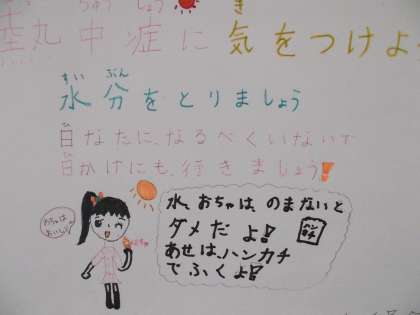 ちゅう しょう き
熱中症に 気をつけよ
すい ぶん
水分をとりましょう
ひ
日なたに、なるべくいないで
ひ
日かけにも、行きましょう!
おちゃは
おいしい
水、おちゃは、のまないと
ダメだよ!
あせは、ハンカチ
でふくよ!